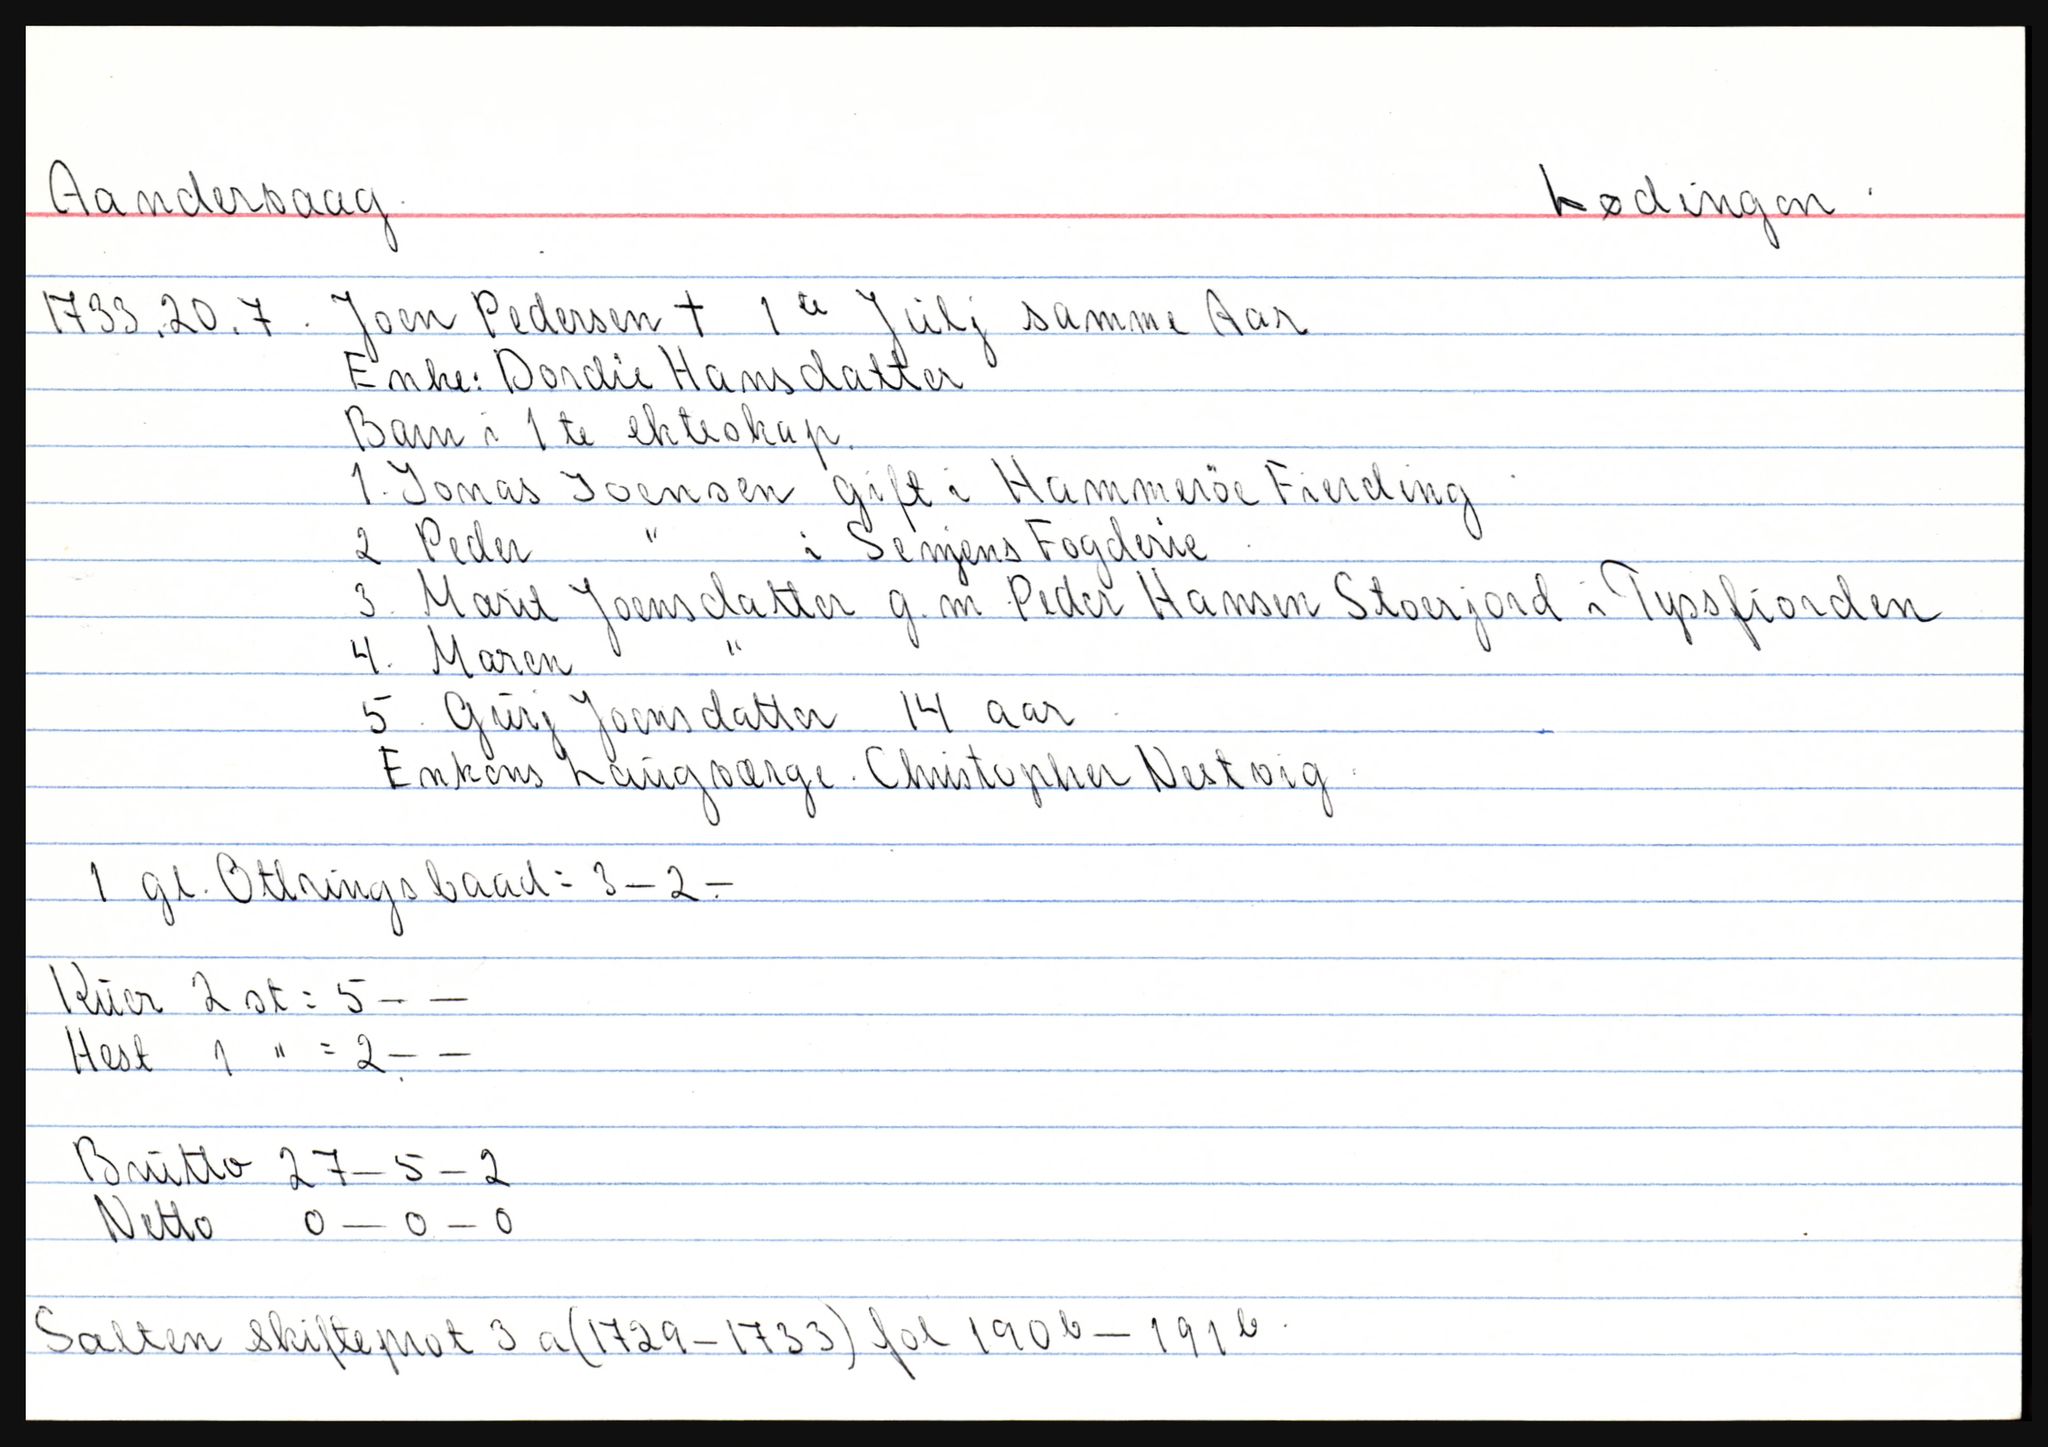 Aandervaag. Lødingen.
1733.20.7. Joen Pedersen † 1te Jülj samme Aar
Enke: Dordie Hansdatter
Barn i 1te ekteskap.
1. Jonas Joensen gift i Hammeröe Fierding.
2 Peder " i Senjens Fogderie.
3. Marit Joensdatter g.m. Peder Hansen Stoerjord i Tyssfiorden
4. Maren "
5. Gürj Joensdatter 14 aar.
Enkens Laügværge. Christopher Nestvig.
1 gl. Ottringsbaad = 3-2-
Küer 2 st = 5 - -
Hest 1 " = 2 - -
Brütto 27-5-2
Netto 0-0-0
Salten skifteprot 3a (1729-1733) fol 190b-191b.